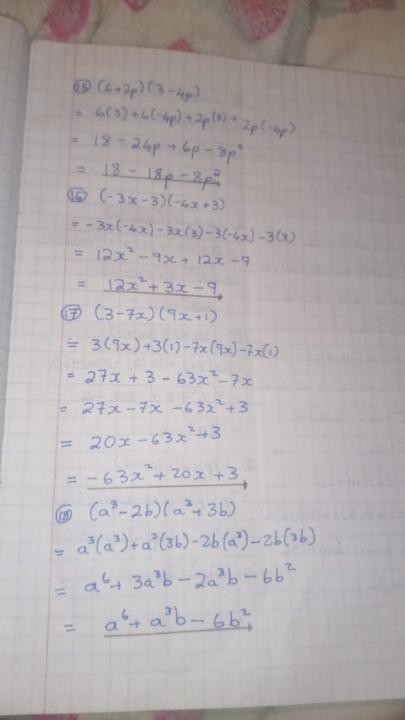 ⑮ (6+2p)(3-4p)
= 6(3)+6(-4p)+2p(3)+2p(-4p)
= 18 - 24p + 6p - 8p²
= 18 - 18p - 8p²
⑯ (-3x-3)(-4x+3)
= -3x(-4x)-3x(3)-3(-4x)-3(3)
= 12x² - 9x + 12x - 9
= 12x² + 3x - 9
⑰ (3-7x)(9x+1)
= 3(9x)+3(1)-7x(9x)-7x(1)
= 27x + 3 - 63x² - 7x
= 27x - 7x - 63x² + 3
= 20x - 63x² + 3
= -63x² + 20x + 3
⑱ (a³-2b)(a³+3b)
= a³(a³)+a³(3b)-2b(a³)-2b(3b)
= a⁶ + 3a³b - 2a³b - 6b²
= a⁶ + a³b - 6b²